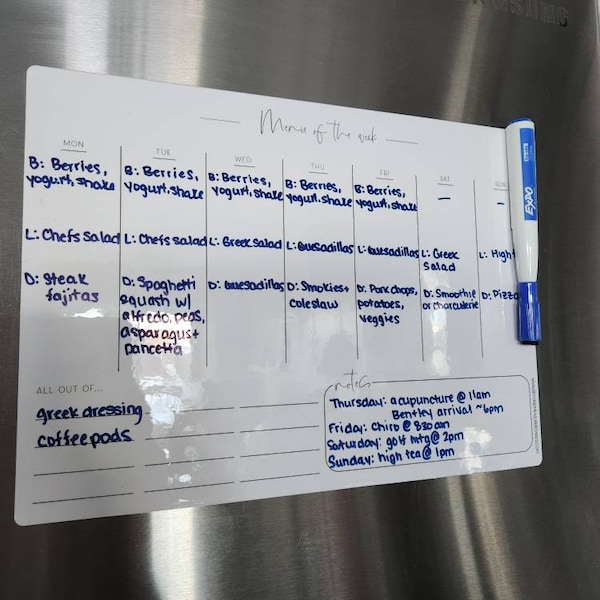 SAMSUNG
Menu of the week
MON
B: Berries,
yogurt, shake
L: Chefs Salad
D: Steak
fajitas
TUE
B: Berries,
yogurt, shake
L: Chefs salad
D: Spaghetti
squash w/
alfredo, peas,
asparagus +
pancetta
WED
B: Berries,
yogurt, shake
L: Greek Salad
D: Quesadillas
THU
B: Berries,
yogurt, shake
L: Quesadillas
D: Smokies +
coleslaw
FRI
B: Berries,
yogurt, shake
L: Quesadillas
D: Pork chops,
potatoes,
veggies
SAT
–
L: Greek
Salad
D: Smoothie
or charcuterie
SUN
–
L: High
D: Pizza
EXPO
ALL OUT OF...
greek dressing
coffee pods
notes
Thursday: acupuncture @ 11am
Bentley arrival ~6pm
Friday: chiro @ 830am
Saturday: golf mtg @ 2pm
Sunday: high tea @ 1pm